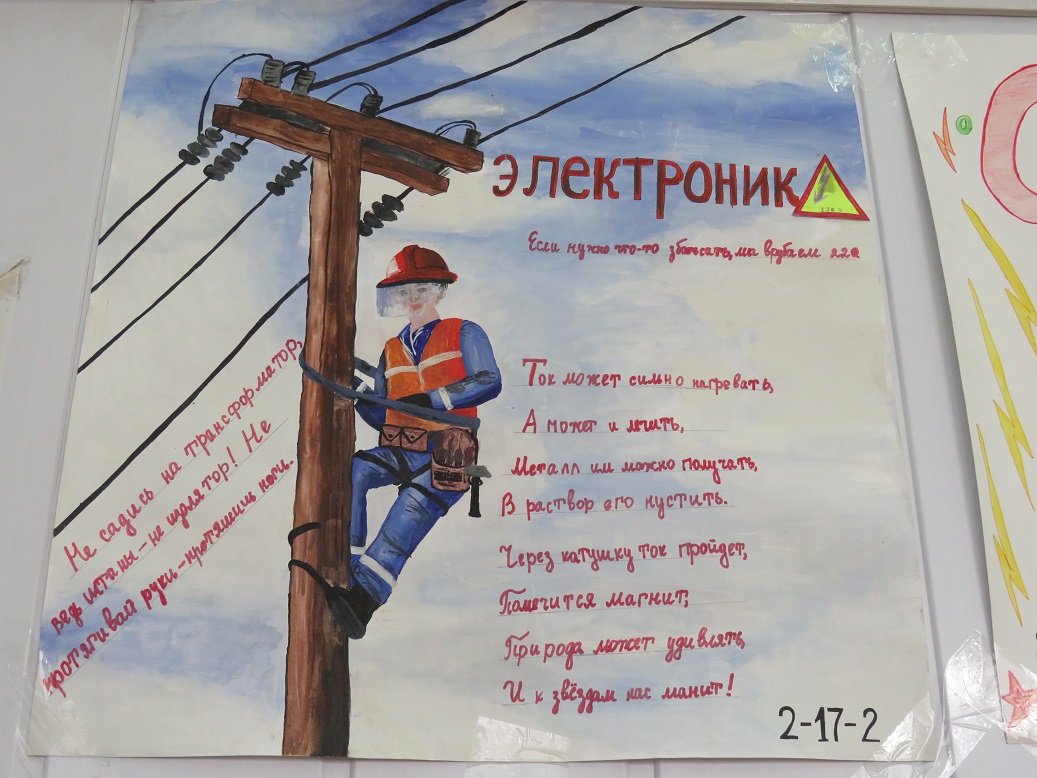 ЭЛЕКТРОНИК
Если нужно что-то збацать, мы врубаем 220
Не садись на трансформатор,
ведь штаны - не изолятор! Не
протягивай руки - протянешь ноги.
Ток может сильно нагревать,
А может и лечить,
Металл им можно получать,
В раствор его пустить.
Через катушку ток пройдет,
Получится магнит,
Природа может удивлять,
И к звёздам нас манит!
2-17-2